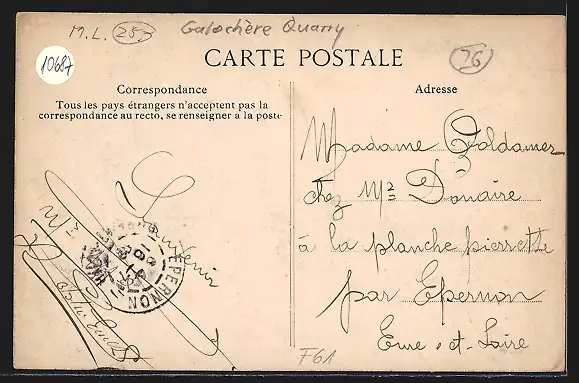 M.L. 257 Galochère Quarry
10687
76
CARTE POSTALE
Correspondance
Tous les pays étrangers n'acceptent pas la
correspondance au recto, se renseigner à la poste
Adresse
Souvenir
EPERNON
Madame Goldamer
chez Mr Douaire
à la planche pierrette
par Epernon
Eure-et-Loire
F61